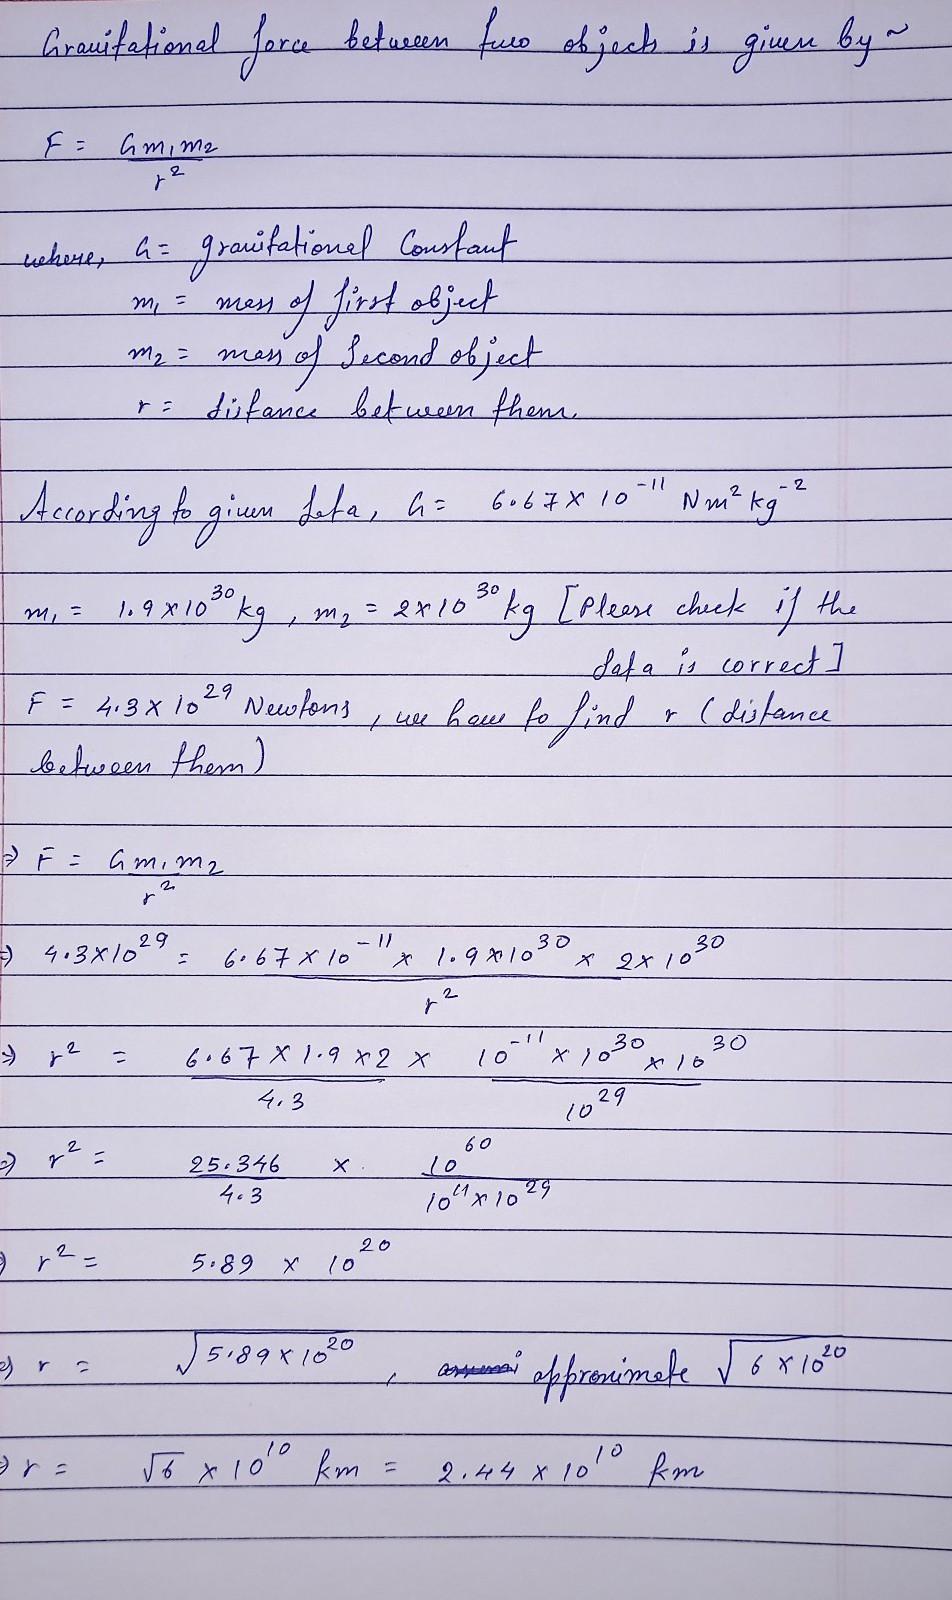 Gravitational force between two objects is given by ~
F = Gm₁m₂
r²
where, G = gravitational Constant
m₁ = mass of first object
m₂ = mass of Second object
r = distance between them.
According to given data, G = 6.67 × 10⁻¹¹ Nm² kg⁻²
m₁ = 1.9 × 10³⁰ kg , m₂ = 2 × 10³⁰ kg [Please check if the
data is correct]
F = 4.3 × 10²⁹ Newtons , we have to find r (distance
between them)
⇒ F = Gm₁m₂
r²
⇒ 4.3×10²⁹ = 6.67 × 10⁻¹¹ × 1.9×10³⁰ × 2×10³⁰
r²
⇒ r² = 6.67 × 1.9 × 2 × 10⁻¹¹ × 10³⁰ × 10³⁰
4.3 10²⁹
⇒ r² = 25.346 × 10⁶⁰
4.3 10¹¹ × 10²⁹
⇒ r² = 5.89 × 10²⁰
⇒ r = √5.89 × 10²⁰ , approximate √6 × 10²⁰
⇒ r = √6 × 10¹⁰ km = 2.44 × 10¹⁰ km